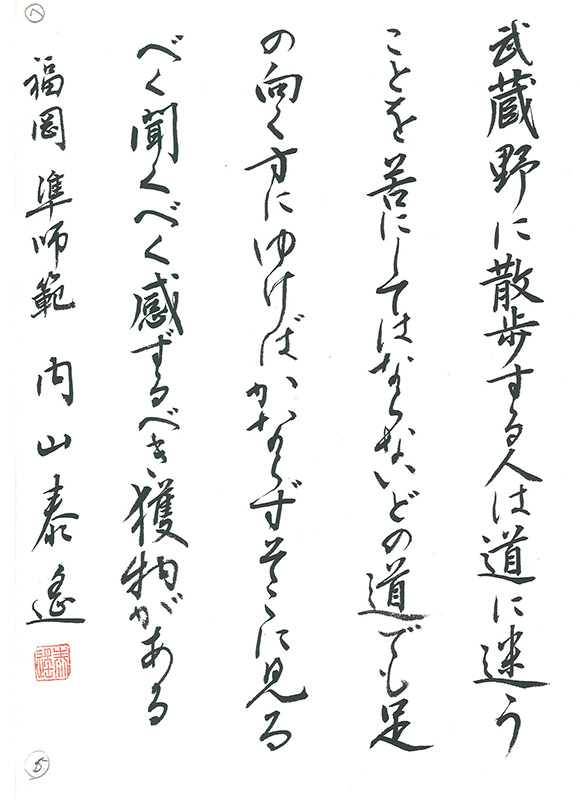 武蔵野に散歩する人は道に迷う
ことを苦にしてはならないどの道でも足
の向く方にゆけばかならずそこに見る
べく聞くべく感ずるべき獲物がある
福岡 準師範 内山泰遙